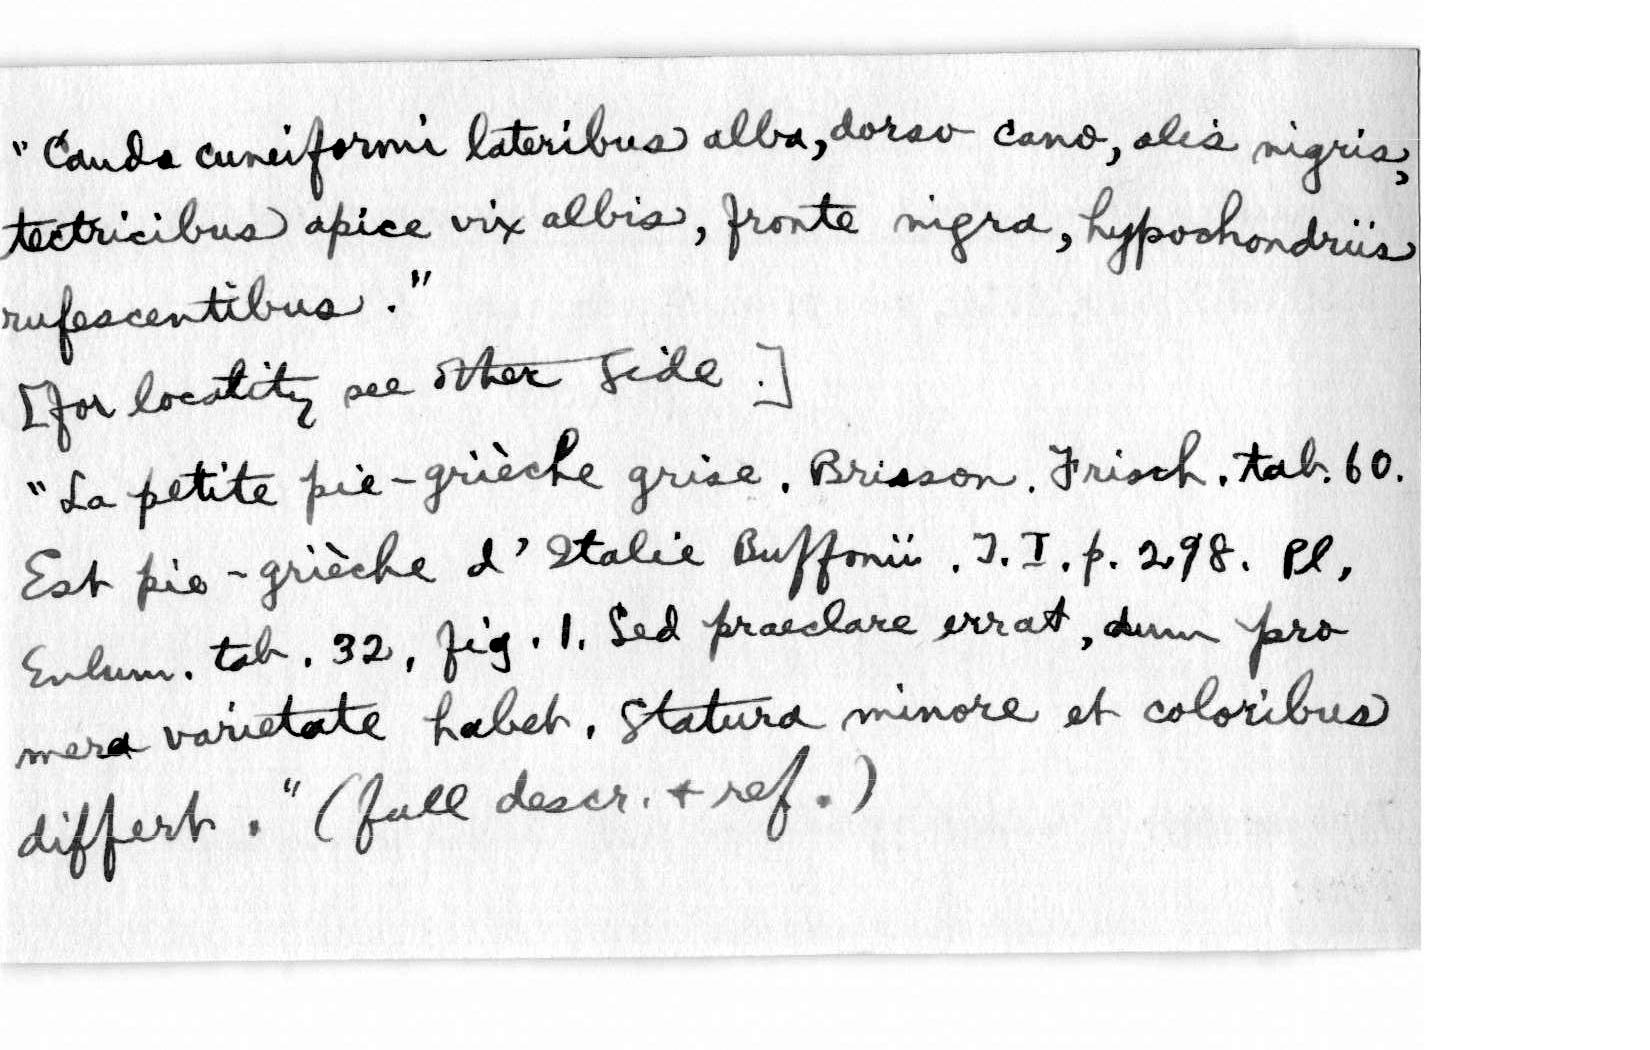 "Cauda cuneiformi lateribus alba, dorso cano, alis nigris,
tectricibus apice vix albis, fronte nigra, hypochondriis
rufescentibus."
[for locality see other side.]
"La petite pie-grièche grise. Brisson. Frisch. tab. 60.
Est pie-grièche d'Italie Buffonii. T. I. p. 298. Pl.
Enlum. tab. 32, fig. 1. Sed praeclare errat, dum pro
mera varietate habet. Statura minore et coloribus
differt." (full descr. + ref.)